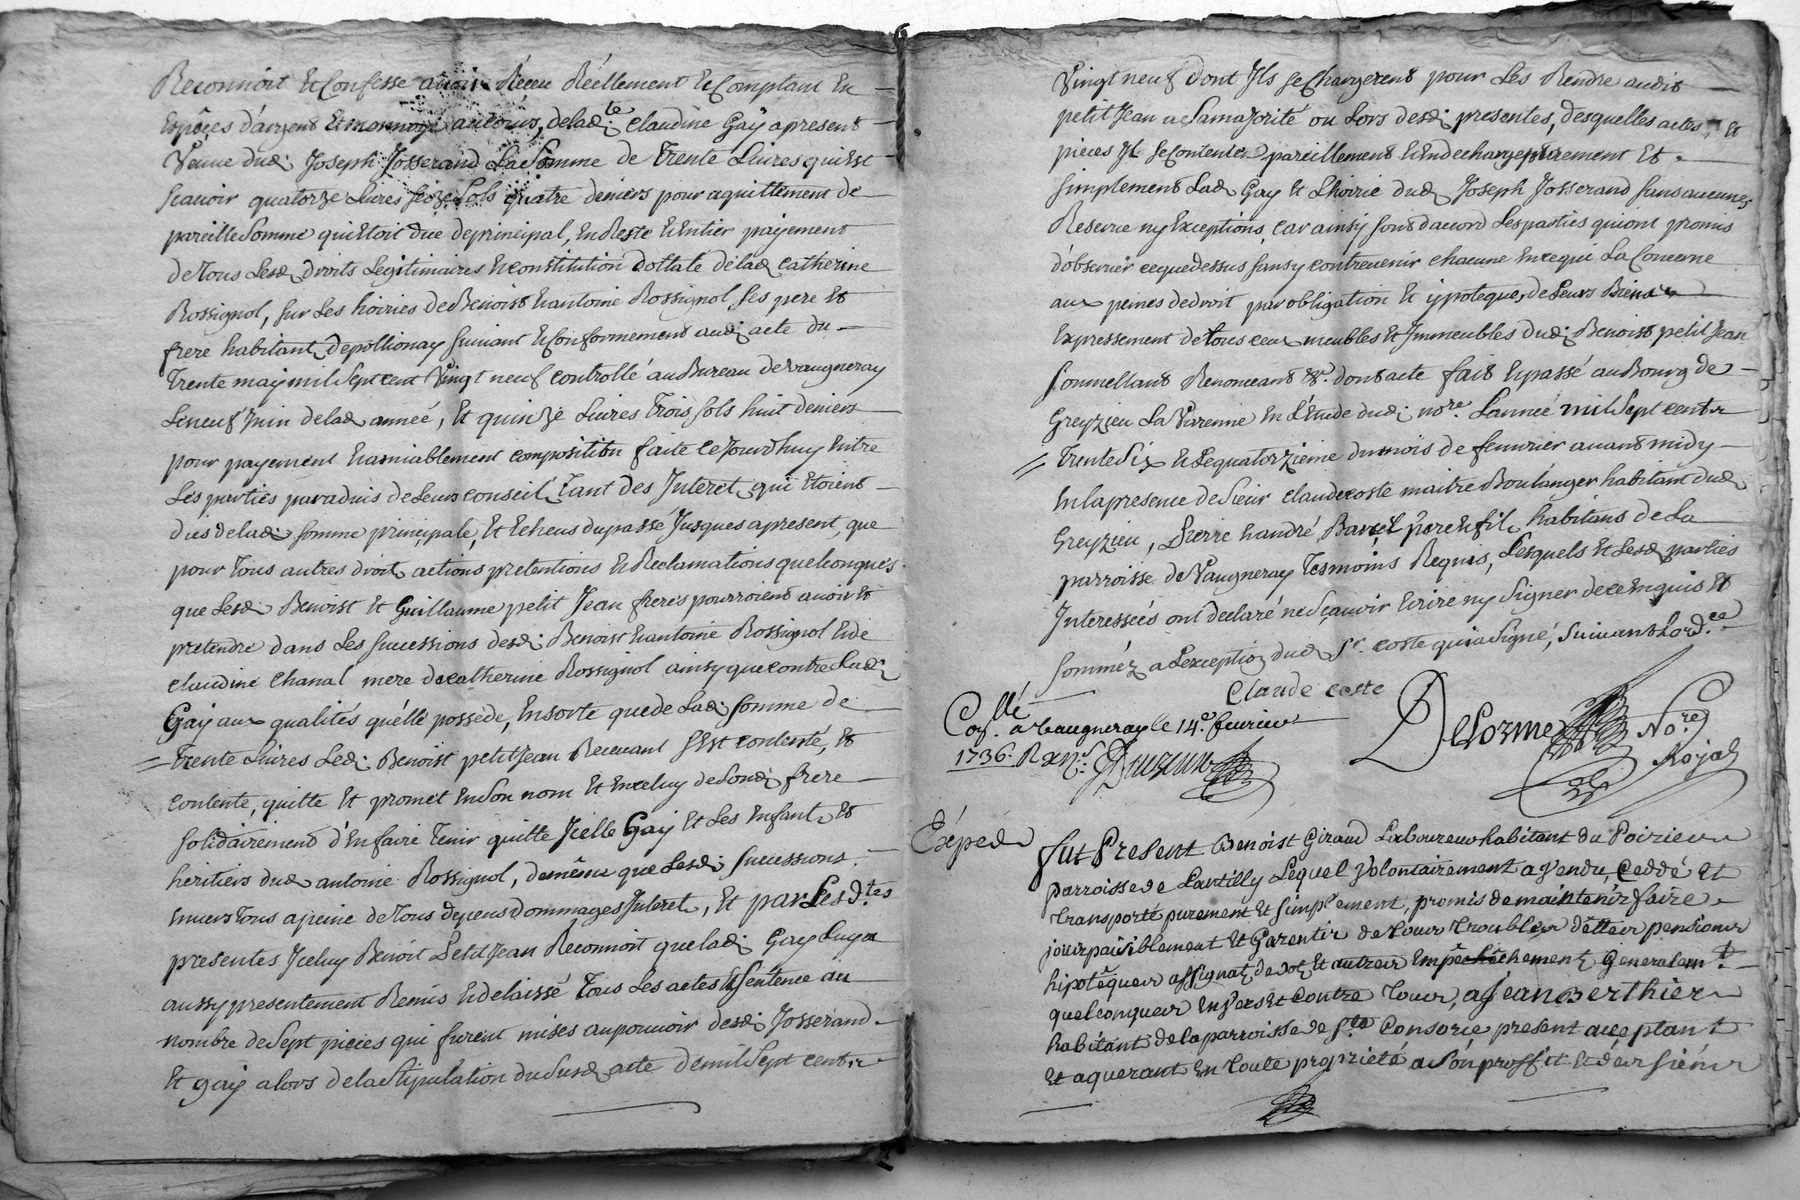 Reconnoit et Confesse avoir Receu Réellement et Comptant en
Espèces d'argent et monnoye au cours, de lad.te Claudine Gay a present
Veuve dud. Joseph Josserand La Somme de Trente Livres qui est
scavoir quatorze Livres seize sols quatre deniers pour aquittement de
pareille Somme qui étoit due de principal, en Reste et entier payement
de tous Lesd. droits Legitimaires et constitution dottale de lad. Catherine
Rossignol, sur Les hoiries de Benoist et antoine Rossignol, ses pere et
frere habitant de pollionay suivant et Conformement aud. acte du
trente may mil sept cent Vingt neuf controllé au Bureau de Vaugneray
Le neuf juin de lad. année, et quinze Livres trois sols huit deniers
pour payement et amiablement composition faite ce Jourdhuy entre
Les parties par advis de Leurs conseil, tant des Interet qui etoient
dues de lad. somme principale, et Echeus du passé Jusques apresent, que
pour tous autres droit, actions pretentions et Reclamations quelconques
que Lesd. Benoist et Guillaume petit Jean freres pourroient avoir et
pretendre dans Les successions desd. Benoist et antoine Rossignol et de
Claudine Chanal mere de Catherine Rossignol ainsy que contre Lad.
Gay aux qualités qu'elle possede, en sorte que de Lad. somme de
Trente Livres Led. Benoist petit Jean Recevant s'est contenté, et
contente, quitte et promet en son nom et en celuy de Sond. frere
solidairement d'en faire tenir quitte Icelle Gay et Les Enfant et
heritiers dud. antoine Rossignol, de même que Lesd. successions
envers tous a peine de tous depens dommages Interet, et par Les d.tes
presentes Iceluy Benoit Petit Jean Reconnoit que lad. Gay Luy a
aussy presentement Remis et delaissé tous Les actes et Sentence au
nombre de Sept pieces qui furent mises au pouvoir desd. Josserand
et gay alors de la Stipulation du Susd. acte de mil Sept cent
Vingt neuf dont Ils se Chargerent pour Les Rendre audit
petit Jean a Sa majorité ou Lors desd. presentes, desquelles actes et
pieces Il se Contente pareillement et En decharge purement et
simplement Lad. Gay et L'hoirie dud. Joseph Josserand sans aucunes
Reserve ny Exceptions, car ainsy sont d'accord Les parties qui ont promis
d'observer ce que dessus sans y contrevenir chacune en ce qui La Concerne
aux peines de droit par obligation et ypoteque, de Leurs Biens
Expressement de tous ceux meubles et Immeubles dud. Benoist petit Jean
Soumettant Renonceant &c. dont acte fait et passé au Bourg de
Greyzieu La Varenne en L'Etude dud. no.re L'année mil Sept cent
trente Six et Le quatorzieme du mois de fevrier avant midy
en la presence de Sieur Claude coste maitre Boulanger habitant dud.
Greyzieu, Pierre et andré Bariel pere et fil, habitans de La
parroisse de Vaugneray tesmoins Requis, Lesquels et Lesd. parties
Interessées ont declaré ne Sçavoir Ecrire ny Signer de ce enquis et
sommez a L'exception dud. S.r coste qui a Signé, Suivant L'ord.ce
Claude coste
Con.llé a Vaugneray le 14.e fevrier
1736.
Delorme No.re
Royal
Expedé
fut Present Benoist Giraud Laboureur habitant du Poirieu
parroisse de Lantilly Lequel Volontairement a Vendu, Ceddé et
transporté purement et simplement, promis de maintenir faire
jouir paisiblement et Garentir de tous troubles dettes pensions
hipotèques assignat de dot et autres Empêchement Generalem.t
quelconques Envers et Contre tous, a jean Berthier
habitant de la parroisse de S.te Consorce present acceptant
et aquerant en toute proprieté a Son proffit et des siens